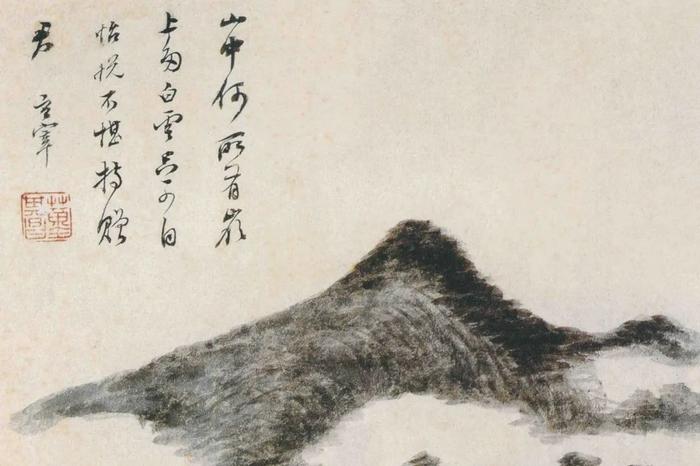 山中何所有嶺
上多白雲只可自
怡悅不堪持贈
君 玄宰
董其昌